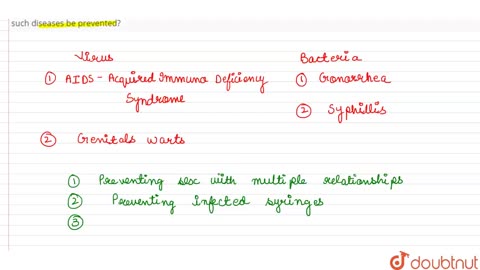 such diseases be prevented?
Virus Bacteria
① AIDS - Acquired Immuno Deficiency ① Gonorrhea
Syndrome
② Syphillis
② Genitals warts
① Preventing sex with multiple relationships
② Preventing Infected syringes
③
doubtnut